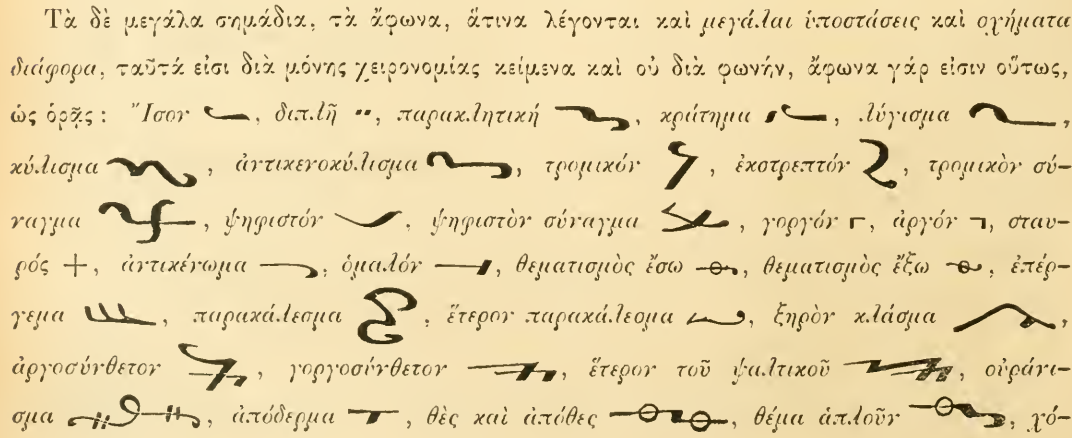 Τὰ δὲ μεγάλα σημάδια, τὰ ἄφωνα, ἅτινα λέγονται καὶ μεγάλαι ὑποστάσεις καὶ σχήματα
διάφορα, ταῦτά εἰσι διὰ μόνης χειρονομίας κείμενα καὶ οὐ διὰ φωνήν, ἄφωνα γάρ εἰσιν οὕτως,
ὡς ὁρᾷς : Ἴσον , διπλῆ , παρακλητική , κράτημα , λύγισμα ,
κύλισμα , ἀντικενοκύλισμα , τρομικόν , ἐκστρεπτόν , τρομικὸν σύ-
ναγμα , ψηφιστόν , ψηφιστὸν σύναγμα , γοργόν , ἀργόν , σταυ-
ρός , ἀντικένωμα , ὁμαλόν , θεματισμὸς ἔσω , θεματισμὸς ἔξω , ἐπέρ-
γεμα , παρακάλεσμα , ἕτερον παρακάλεσμα , ξηρὸν κλάσμα ,
ἀργοσύνθετον , γοργοσύνθετον , ἕτερον τοῦ ψαλτικοῦ , οὐράνι-
σμα , ἀπόδερμα , θὲς καὶ ἀπόθες , θέμα ἁπλοῦν , χό-